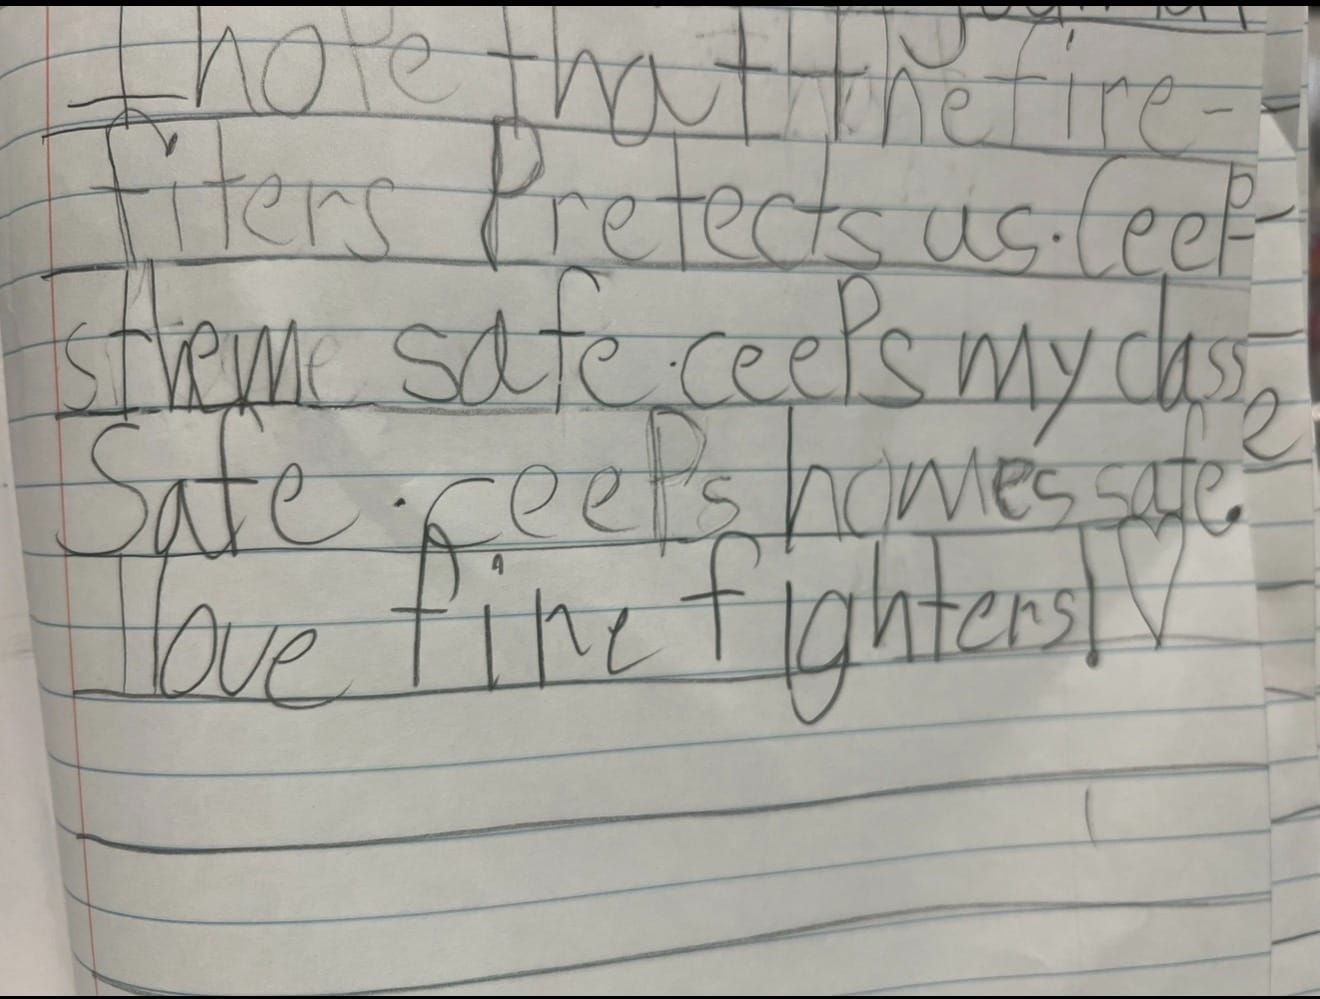 I hope that the fire-
fiters Pretects us. CeeP-
s theme safe. ceePs my class
Safe. ceePs homes safe.
I love fire fighters!